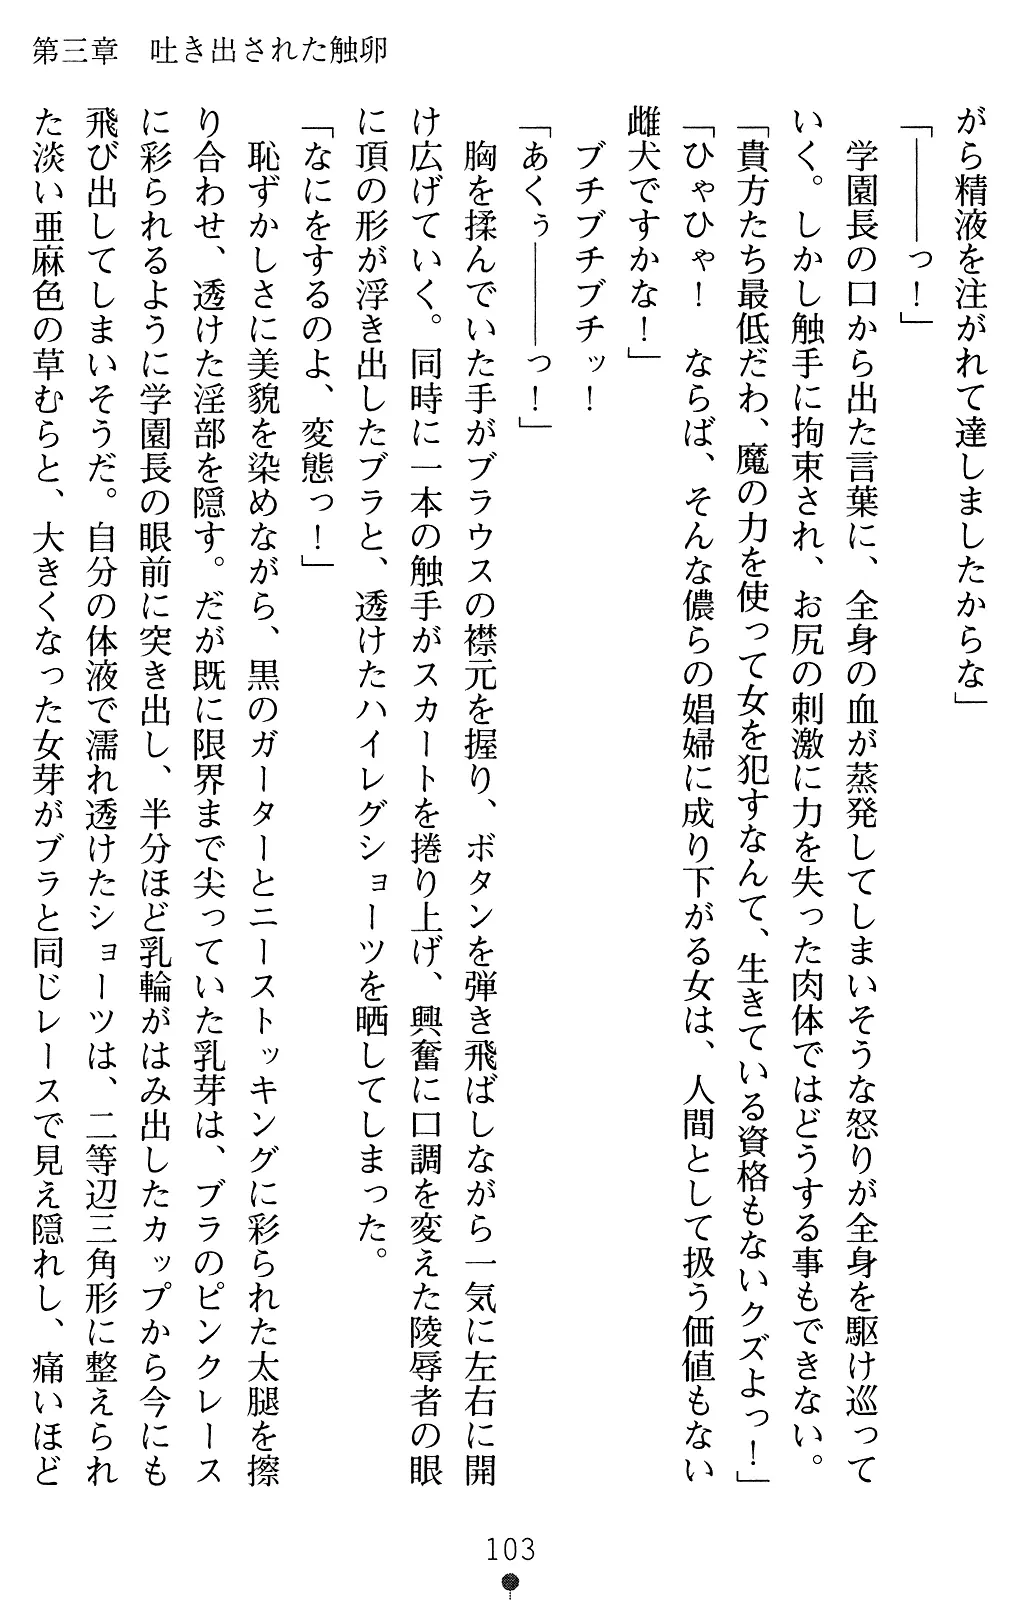 第三章　吐き出された触卵
がら精液を注がれて達しましたからな」
「――――っ！」
　学園長の口から出た言葉に、全身の血が蒸発してしまいそうな怒りが全身を駆け巡って
いく。しかし触手に拘束され、お尻の刺激に力を失った肉体ではどうする事もできない。
「貴方たち最低だわ、魔の力を使って女を犯すなんて、生きている資格もないクズよっ！」
「ひゃひゃ！　ならば、そんな儂らの娼婦に成り下がる女は、人間として扱う価値もない
雌犬ですかな！」
　ブチブチブチッ！
「あくぅ――――っ！」
　胸を揉んでいた手がブラウスの襟元を握り、ボタンを弾き飛ばしながら一気に左右に開
け広げていく。同時に一本の触手がスカートを捲り上げ、興奮に口調を変えた陵辱者の眼
に頂の形が浮き出したブラと、透けたハイレグショーツを晒してしまった。
「なにをするのよ、変態っ！」
　恥ずかしさに美貌を染めながら、黒のガーターとニーストッキングに彩られた太腿を擦
り合わせ、透けた淫部を隠す。だが既に限界まで尖っていた乳芽は、ブラのピンクレース
に彩られるように学園長の眼前に突き出し、半分ほど乳輪がはみ出したカップから今にも
飛び出してしまいそうだ。自分の体液で濡れ透けたショーツは、二等辺三角形に整えられ
た淡い亜麻色の草むらと、大きくなった女芽がブラと同じレースで見え隠れし、痛いほど
103